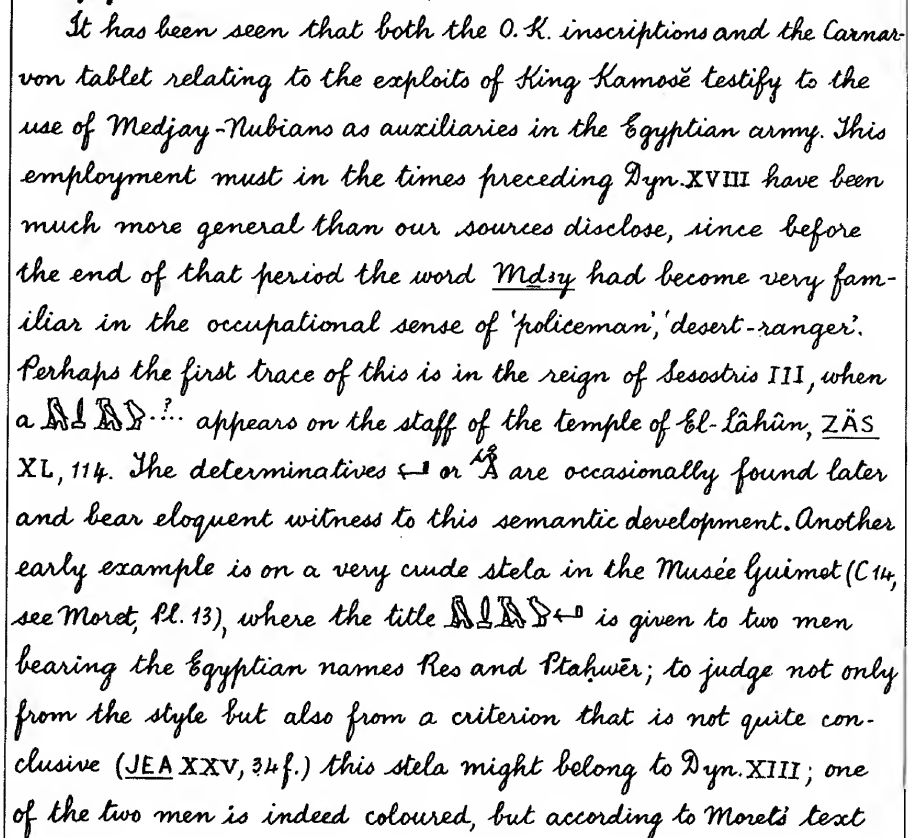 It has been seen that both the O.K. inscriptions and the Carnar-
von tablet relating to the exploits of King Kamosĕ testify to the
use of Medjay-Nubians as auxiliaries in the Egyptian army. This
employment must in the times preceding Dyn. XVIII have been
much more general than our sources disclose, since before
the end of that period the word Mḏꜣy had become very fam-
iliar in the occupational sense of 'policeman', 'desert-ranger'.
Perhaps the first trace of this is in the reign of Sesostris III, when
a appears on the staff of the temple of El-Lâhûn, ZÄS
XL, 114. The determinatives or are occasionally found later
and bear eloquent witness to this semantic development. Another
early example is on a very crude stela in the Musée Guimet (C 14,
see Moret, Pl. 13), where the title is given to two men
bearing the Egyptian names Res and Ptaḥwēr; to judge not only
from the style but also from a criterion that is not quite con-
clusive (JEA XXV, 34 f.) this stela might belong to Dyn. XIII; one
of the two men is indeed coloured, but according to Moret's text